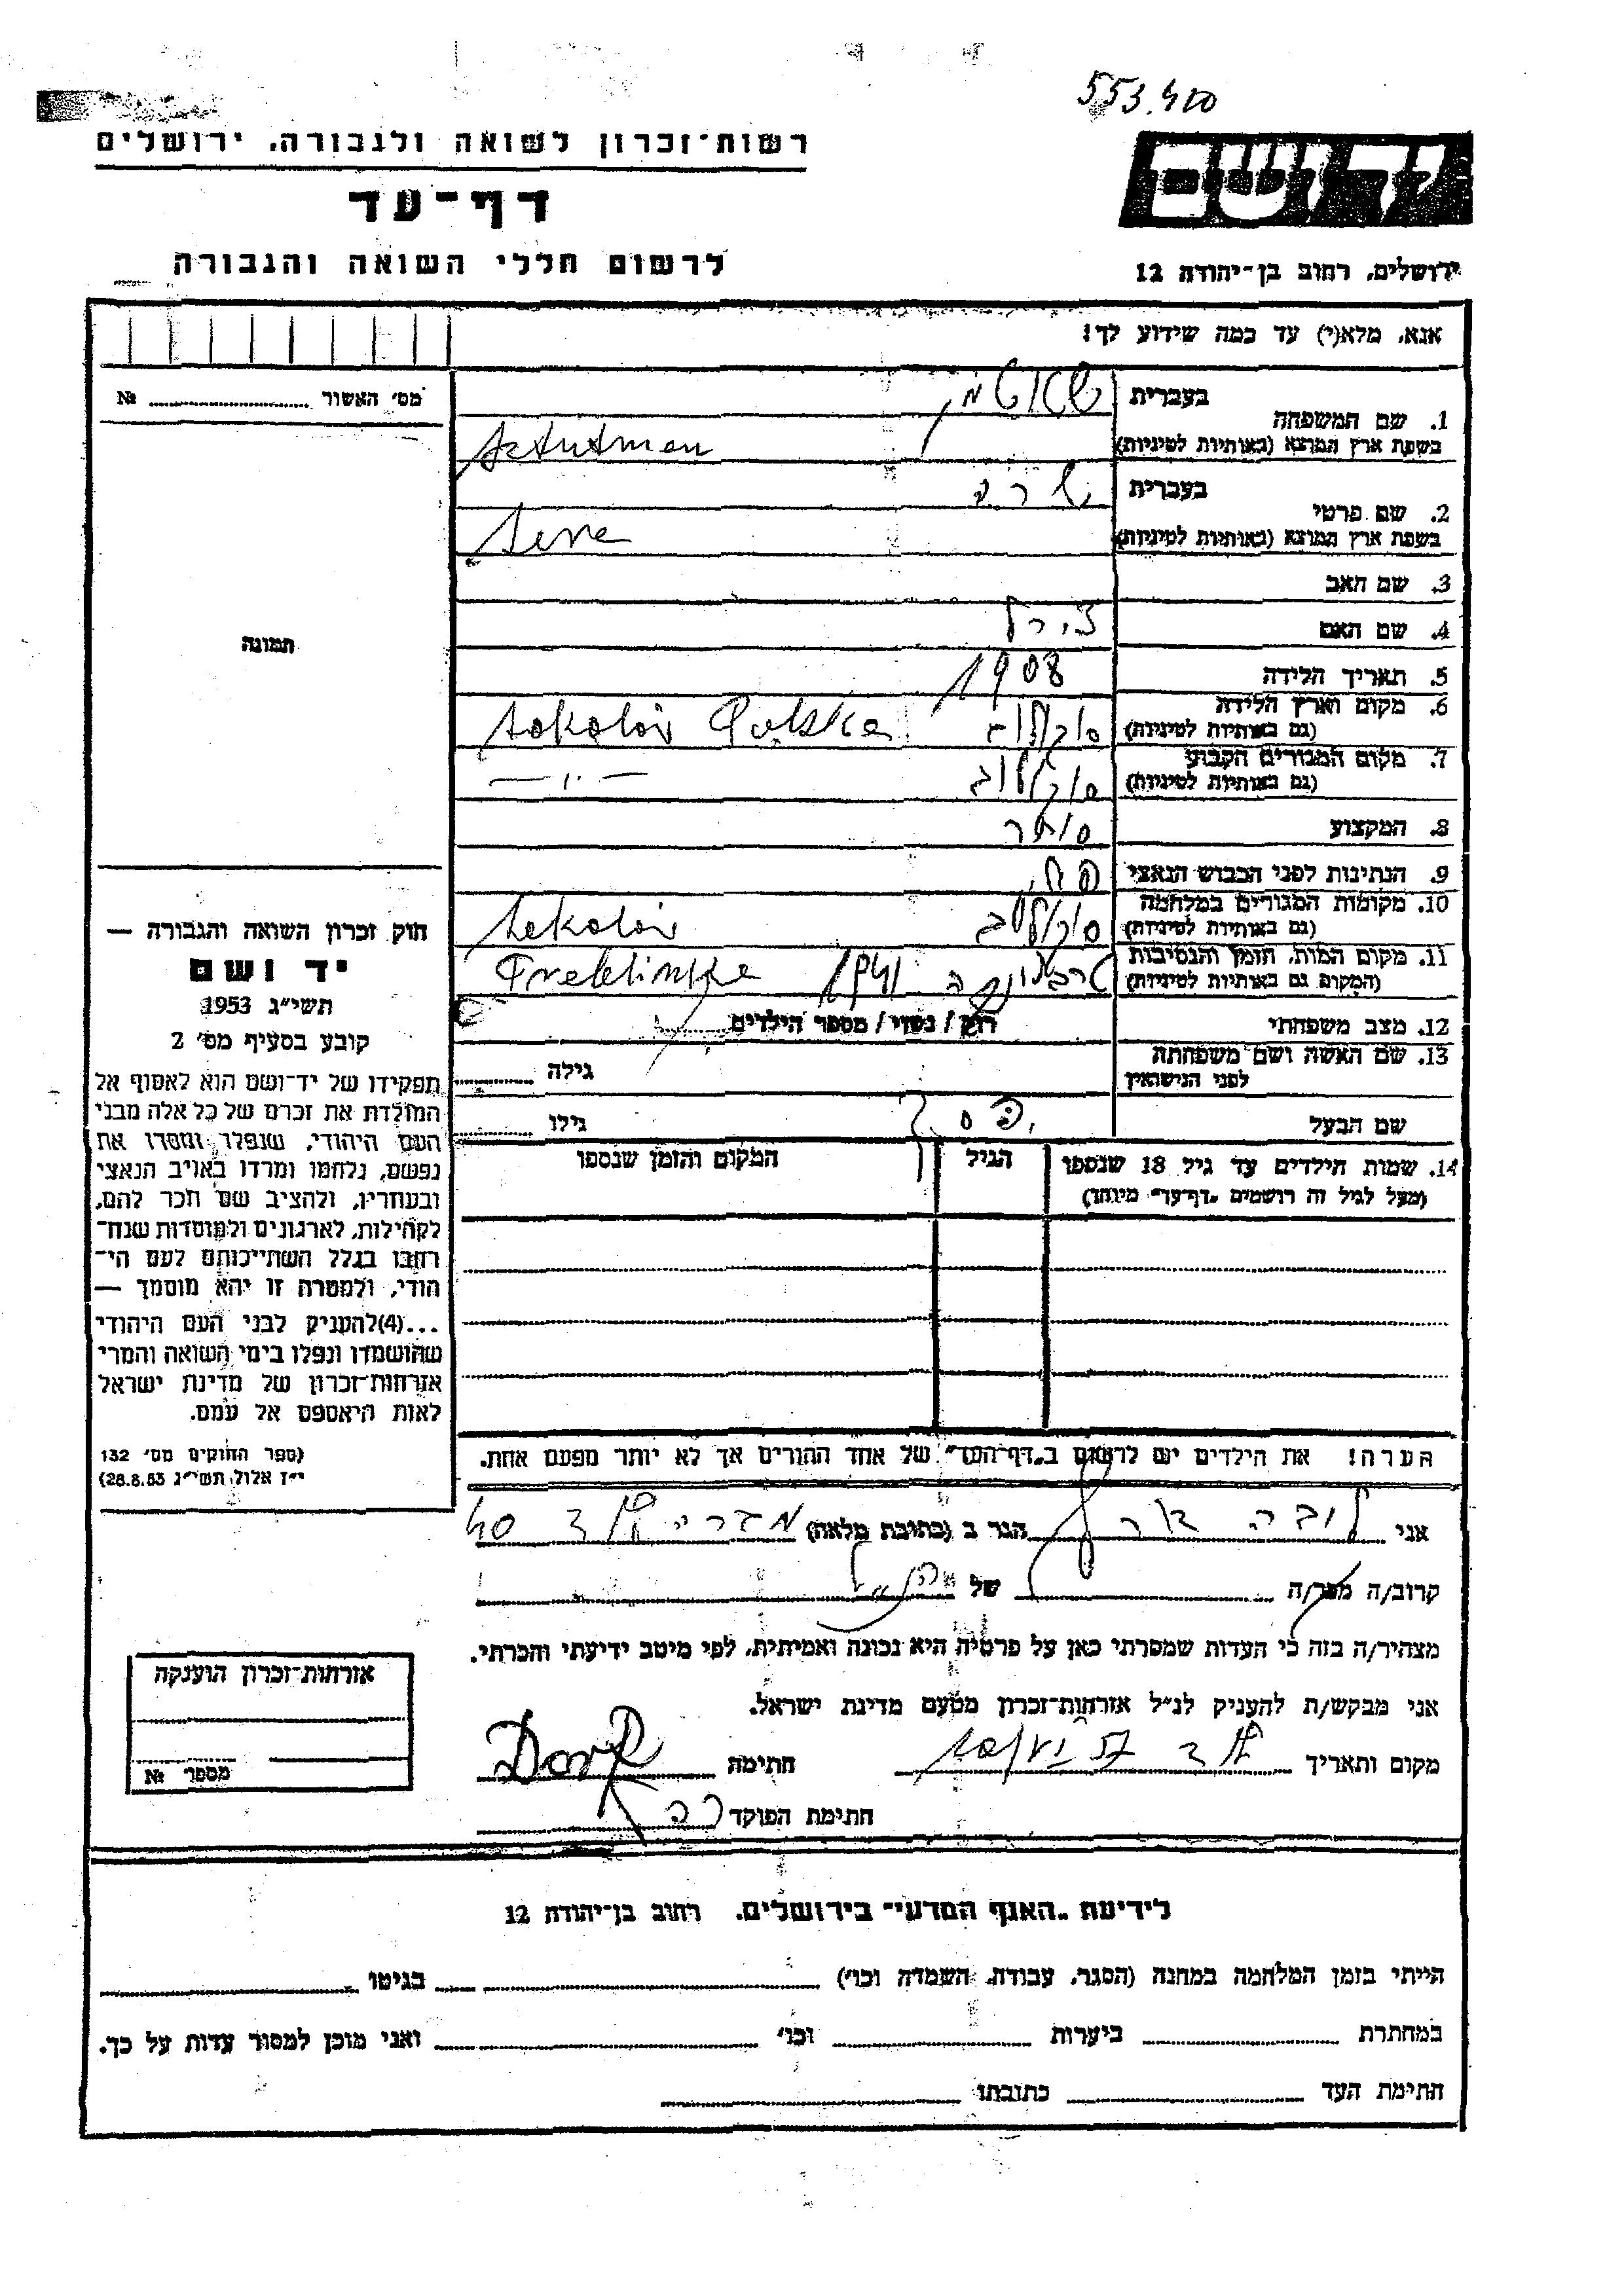 רשות־זכרון לשואה ולגבורה, ירושלים
דף־עד
לרשום חללי השואה והגבורה
ידושם
ירושלים, רחוב בן־יהודה 12
אנא, מלא(י) עד כמה שידוע לך!
מס׳ האשור № 
1. שם המשפחה
בעברית
בשפת ארץ המוצא (באותיות לטיניות) Sztutman
2. שם פרטי
בעברית שרה
בשפת ארץ המוצא (באותיות לטיניות)
3. שם האב
4. שם האם צירל
5. תאריך הלידה 1908
6. מקום וארץ הלידה
(גם באותיות לטיניות) סוקולוב Sokolów Polska
7. מקום המגורים הקבוע
(גם באותיות לטיניות) סוקולוב — ״ —
8. המקצוע סוחר
9. הנתינות לפני הכבוש הנאצי
10. מקומות המגורים במלחמה
(גם באותיות לטיניות) סוקולוב Sokolów
11. מקום המות, הזמן והנסיבות
(המקום גם באותיות לטיניות) טרבלינקה
12. מצב משפחתי רוק / נשוי / מספר הילדים
13. שם האשה ושם משפחתה
לפני הנישואין גילה
שם הבעל גילו
14. שמות הילדים עד גיל 18 שנספו
(מעל לגיל זה רושמים „דף־עד״ מיוחד)
הגיל
המקום והזמן שנספו
הערה! את הילדים יש לרשום ב„דף־העד״ של אחד ההורים אך לא יותר מפעם אחת.
תמונה
חוק זכרון השואה והגבורה —
יד ושם
תשי״ג 1953
קובע בסעיף מס׳ 2
תפקידו של יד־ושם הוא לאסוף אל
המולדת את זכרם של כל אלה מבני
העם היהודי, שנפלו ומסרו את
נפשם, נלחמו ומרדו באויב הנאצי
ובעוזריו, ולהציב שם וזכר להם,
לקהילות, לארגונים ולמוסדות שנח־
רבו בגלל השתייכותם לעם הי־
הודי, ולמטרה זו יהא מוסמך —
...(4)להעניק לבני העם היהודי
שהושמדו ונפלו בימי השואה והמרי
אזרחות־זכרון של מדינת ישראל
לאות היאספם אל עמם.
(ספר החוקים מס׳ 132
י״ז אלול תשי״ג 28.8.53)
אני לובה הגר ב (כתובת מלאה)
קרוב/ה מכר/ה של
מצהיר/ה בזה כי העדות שמסרתי כאן על פרטיה היא נכונה ואמיתית, לפי מיטב ידיעתי והכרתי.
אני מבקש/ת להעניק לנ״ל אזרחות־זכרון מטעם מדינת ישראל.
מקום ותאריך חתימה
חתימת הפוקד
אזרחות־זכרון הוענקה
מספר №
לידיעת „האגף המדעי״ בירושלים, רחוב בן־יהודה 12
הייתי בזמן המלחמה במחנה (הסגר, עבודה, השמדה וכו׳) בגיטו
במחתרת ביערות וכו׳ ואני מוכן למסור עדות על כך.
חתימת העד כתובתו